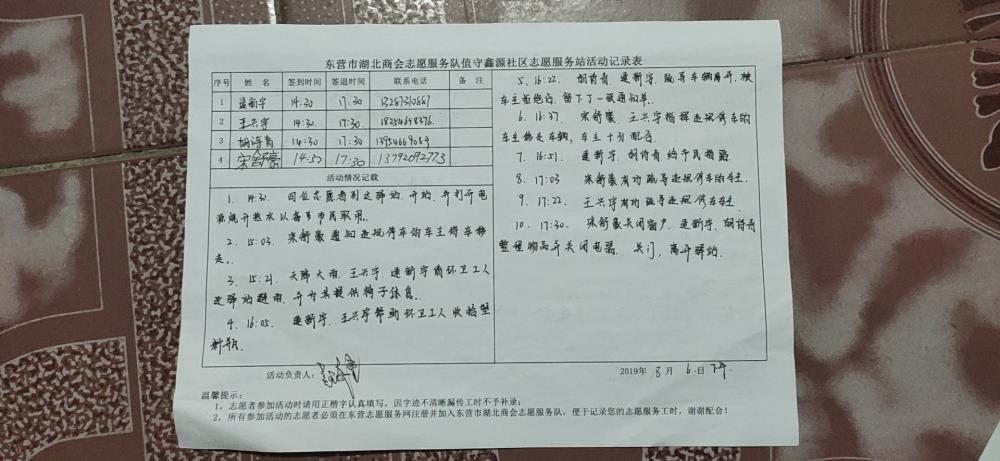 东营市湖北商会志愿服务队值守鑫源社区志愿服务站活动记录表
序号 姓 名 签到时间 签退时间 联系电话 备 注
1 新宇 14:30 17:30
2 王兴宇 14:30. 17:30. 18254698376.
3 胡诗青 14:30 17:30 13954669089
4 宋舒豪 14:30 17:30 13792092773
活动情况记载
1. 14:30. 四位志愿者到达驿站,开站,并打开电
源烧开热水以备于市民取用.
2. 15:03. 宋舒豪通知违规停车的车主将车移
走.
3. 15:21. 天降大雨,王兴宇,新宇请环卫工人
进驿站避雨,并为其提供椅子休息.
4. 16:05. 新宇,王兴宇帮助环卫工人收拾塑
料瓶.
5. 16:22. 胡诗青 新宇,疏导车辆离开,被
车主拒绝后,留下了一张通知单.
6. 16:37. 宋舒豪,王兴宇指挥违规停车的
车主移走车辆,车主十分配合.
7. 16:51. 新宇,胡诗青给市民指路.
8. 17:03 宋舒豪成功疏导违规停车的车主.
9. 17:22. 王兴宇成功疏导违规停车车主.
10. 17:30. 宋舒豪关闭窗户,新宇,胡诗青
整理物品并关闭电器. 关门,离开驿站.
活动负责人:
2019年 8 月 6 日
温馨提示:
1,志愿者参加活动时请用正楷字认真填写,因字迹不清晰漏传工时不予补录;
2,所有参加活动的志愿者必须在东营志愿服务网注册并加入东营市湖北商会志愿服务队,便于记录您的志愿服务工时,谢谢配合!